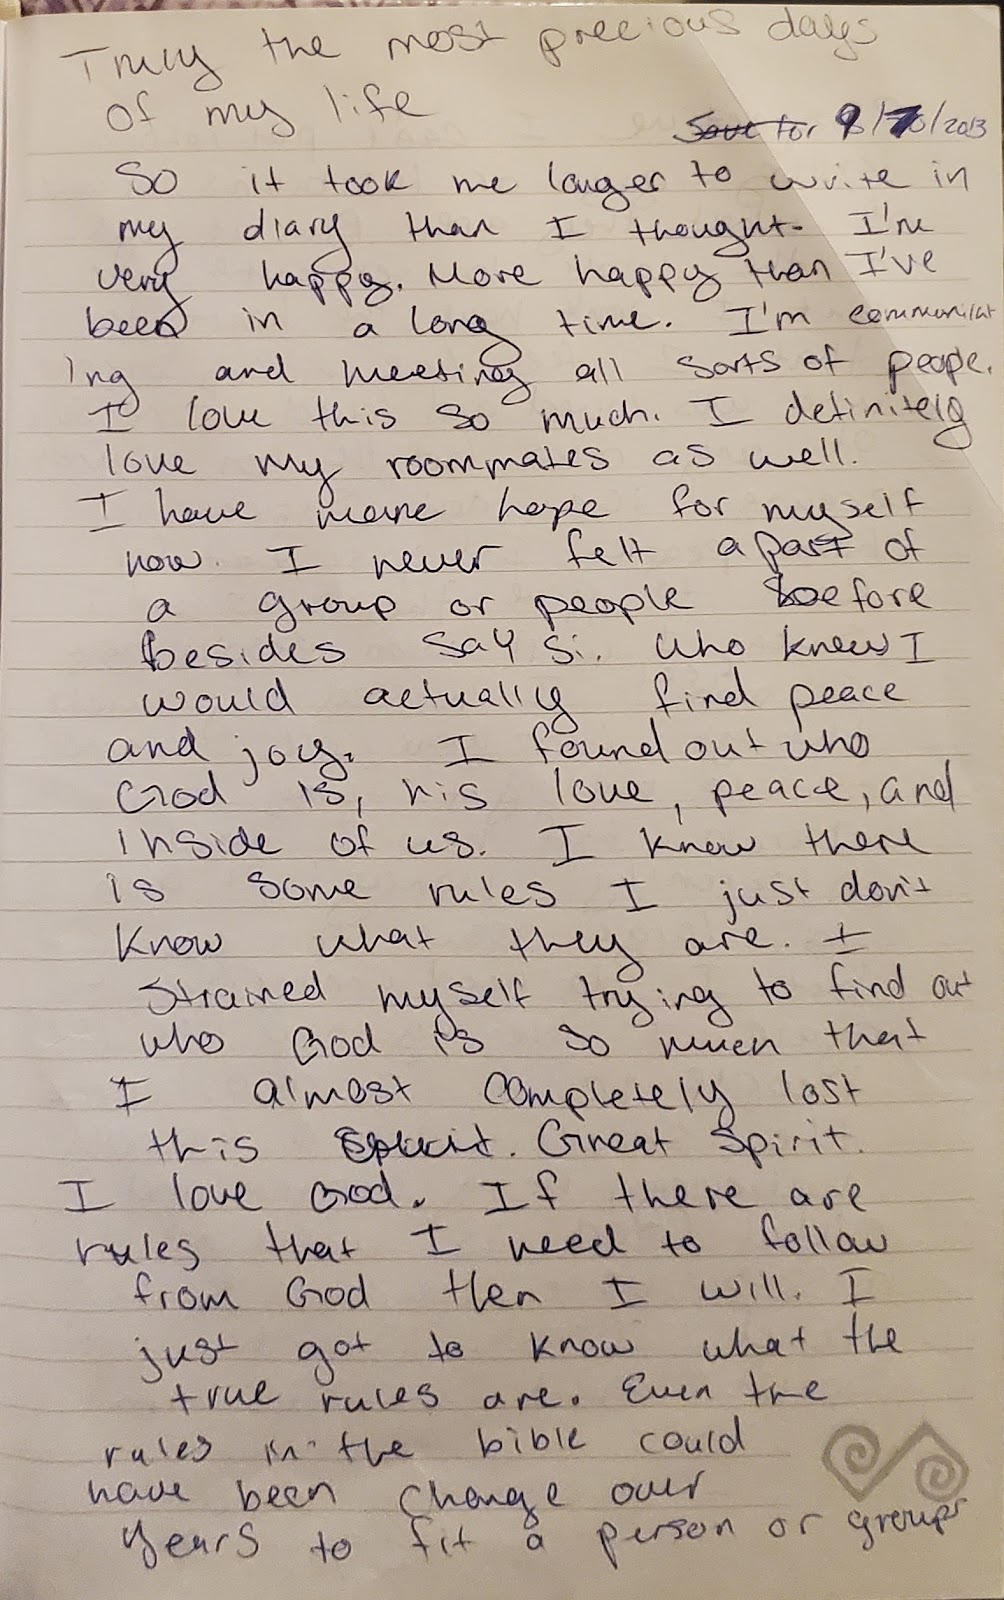 Truly the most precious days
of my life
Save for 9/7/2013
So it took me longer to write in
my diary than I thought. I'm
very happy. More happy than I've
been in a long time. I'm communicat
ing and meeting all sorts of people.
I love this so much. I definitely
love my roommates as well.
I have more hope for myself
now. I never felt apart of
a group or people before
besides Say Si. Who knew I
would actually find peace
and joy. I found out who
God is, his love, peace, and
inside of us. I know there
is some rules I just don't
know what they are. I
strained myself trying to find out
who God is so much that
I almost completely lost
this Spirit. Great Spirit.
I love God. If there are
rules that I need to follow
from God then I will. I
just got to know what the
true rules are. Even the
rules in the bible could
have been change over
years to fit a person or groups